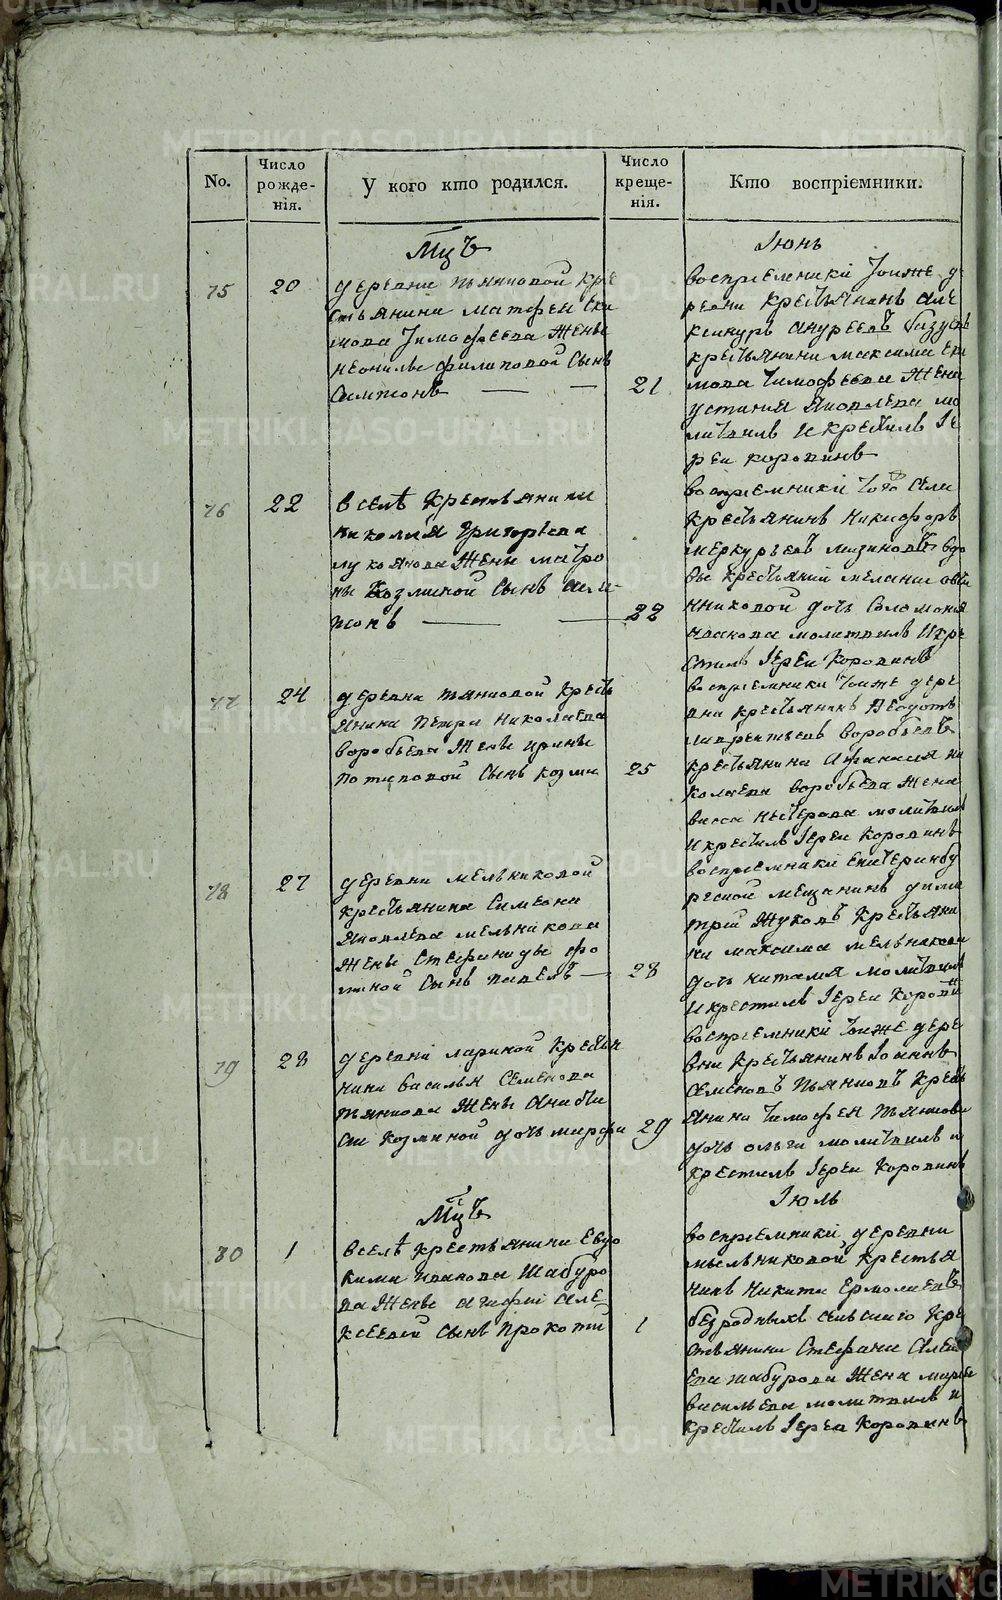 No.
Число рожде-нія.
У кого кто родился.
Число креще-нія.
Кто воспріемники.
Мцъ
Іюнь
75
20
деревни пьянковой кре
стьянина матфея
мова тимофеева жены
неонилы филиповой сынъ
Симеонъ
21
воспріемники тойже де
ревни крестьянинъ але
ксандръ андреевъ
крестьянина максима
мова тимофеева жена
устинія яковлева мо
литвилъ и крестилъ Іе
реи коровинъ
76
22
в селѣ крестьянина
николая григорьева
лукоянова жены матро
ны козминой сынъ
22
воспріемники того села
крестьянинъ никифоръ
меркурьевъ мизиновъ вдо
вы крестьянки меланіи овчи
нниковой дочь Соломонія
иванова молитвилъ и кре
стилъ Іереи Коровинъ
77
24
деревни пьянковой кресть
янина петра николаева
воробьева жены ирины
потаповой сынъ козма
25
воспріемники тойже дере
вни крестьянинъ Ѳедотъ
лаврентьевъ воробьевъ
крестьянина Афанасія ни
колаева воробьева жена
васса нестерова молитвилъ
и крестилъ Іереи Коровинъ
78
27
деревни мельниковой
крестьянина Симеона
яковлева мельникова
жены Стефаниды фо
миной сынъ павелъ
28
воспріемники екатеринбу
ргской мещанинъ дими
трій жуковъ крестьяни
на максима мельникова
дочь наталія молитвилъ
и крестилъ Іереи Корови
79
28
деревни лариной крестья
нина василья Семенова
пьянкова жены анаста
сіи козминой дочь марфа
29
воспріемники тойже дере
вни крестьянинъ Іоаннъ
Семеновъ пьянковъ кресть
янина тимофея пьянкова
дочь ольга молитвилъ и
крестилъ Іереи Коровинъ
Мцъ
Іюль
80
1
в селѣ крестьянина Евдо
кима иванова шабуро
ва жены агафіи але
ксеевой сынъ прокопи
1
воспріемники деревни
мельниковой крестья
нинъ никита ермолаевъ
безродныхъ сельскаго кре
стьянина Стефана алек
ева шабурова жена марфа
васильева молитвилъ и
крестилъ Іереи Коровинъ
METRIKI.GASO-URAL.RU